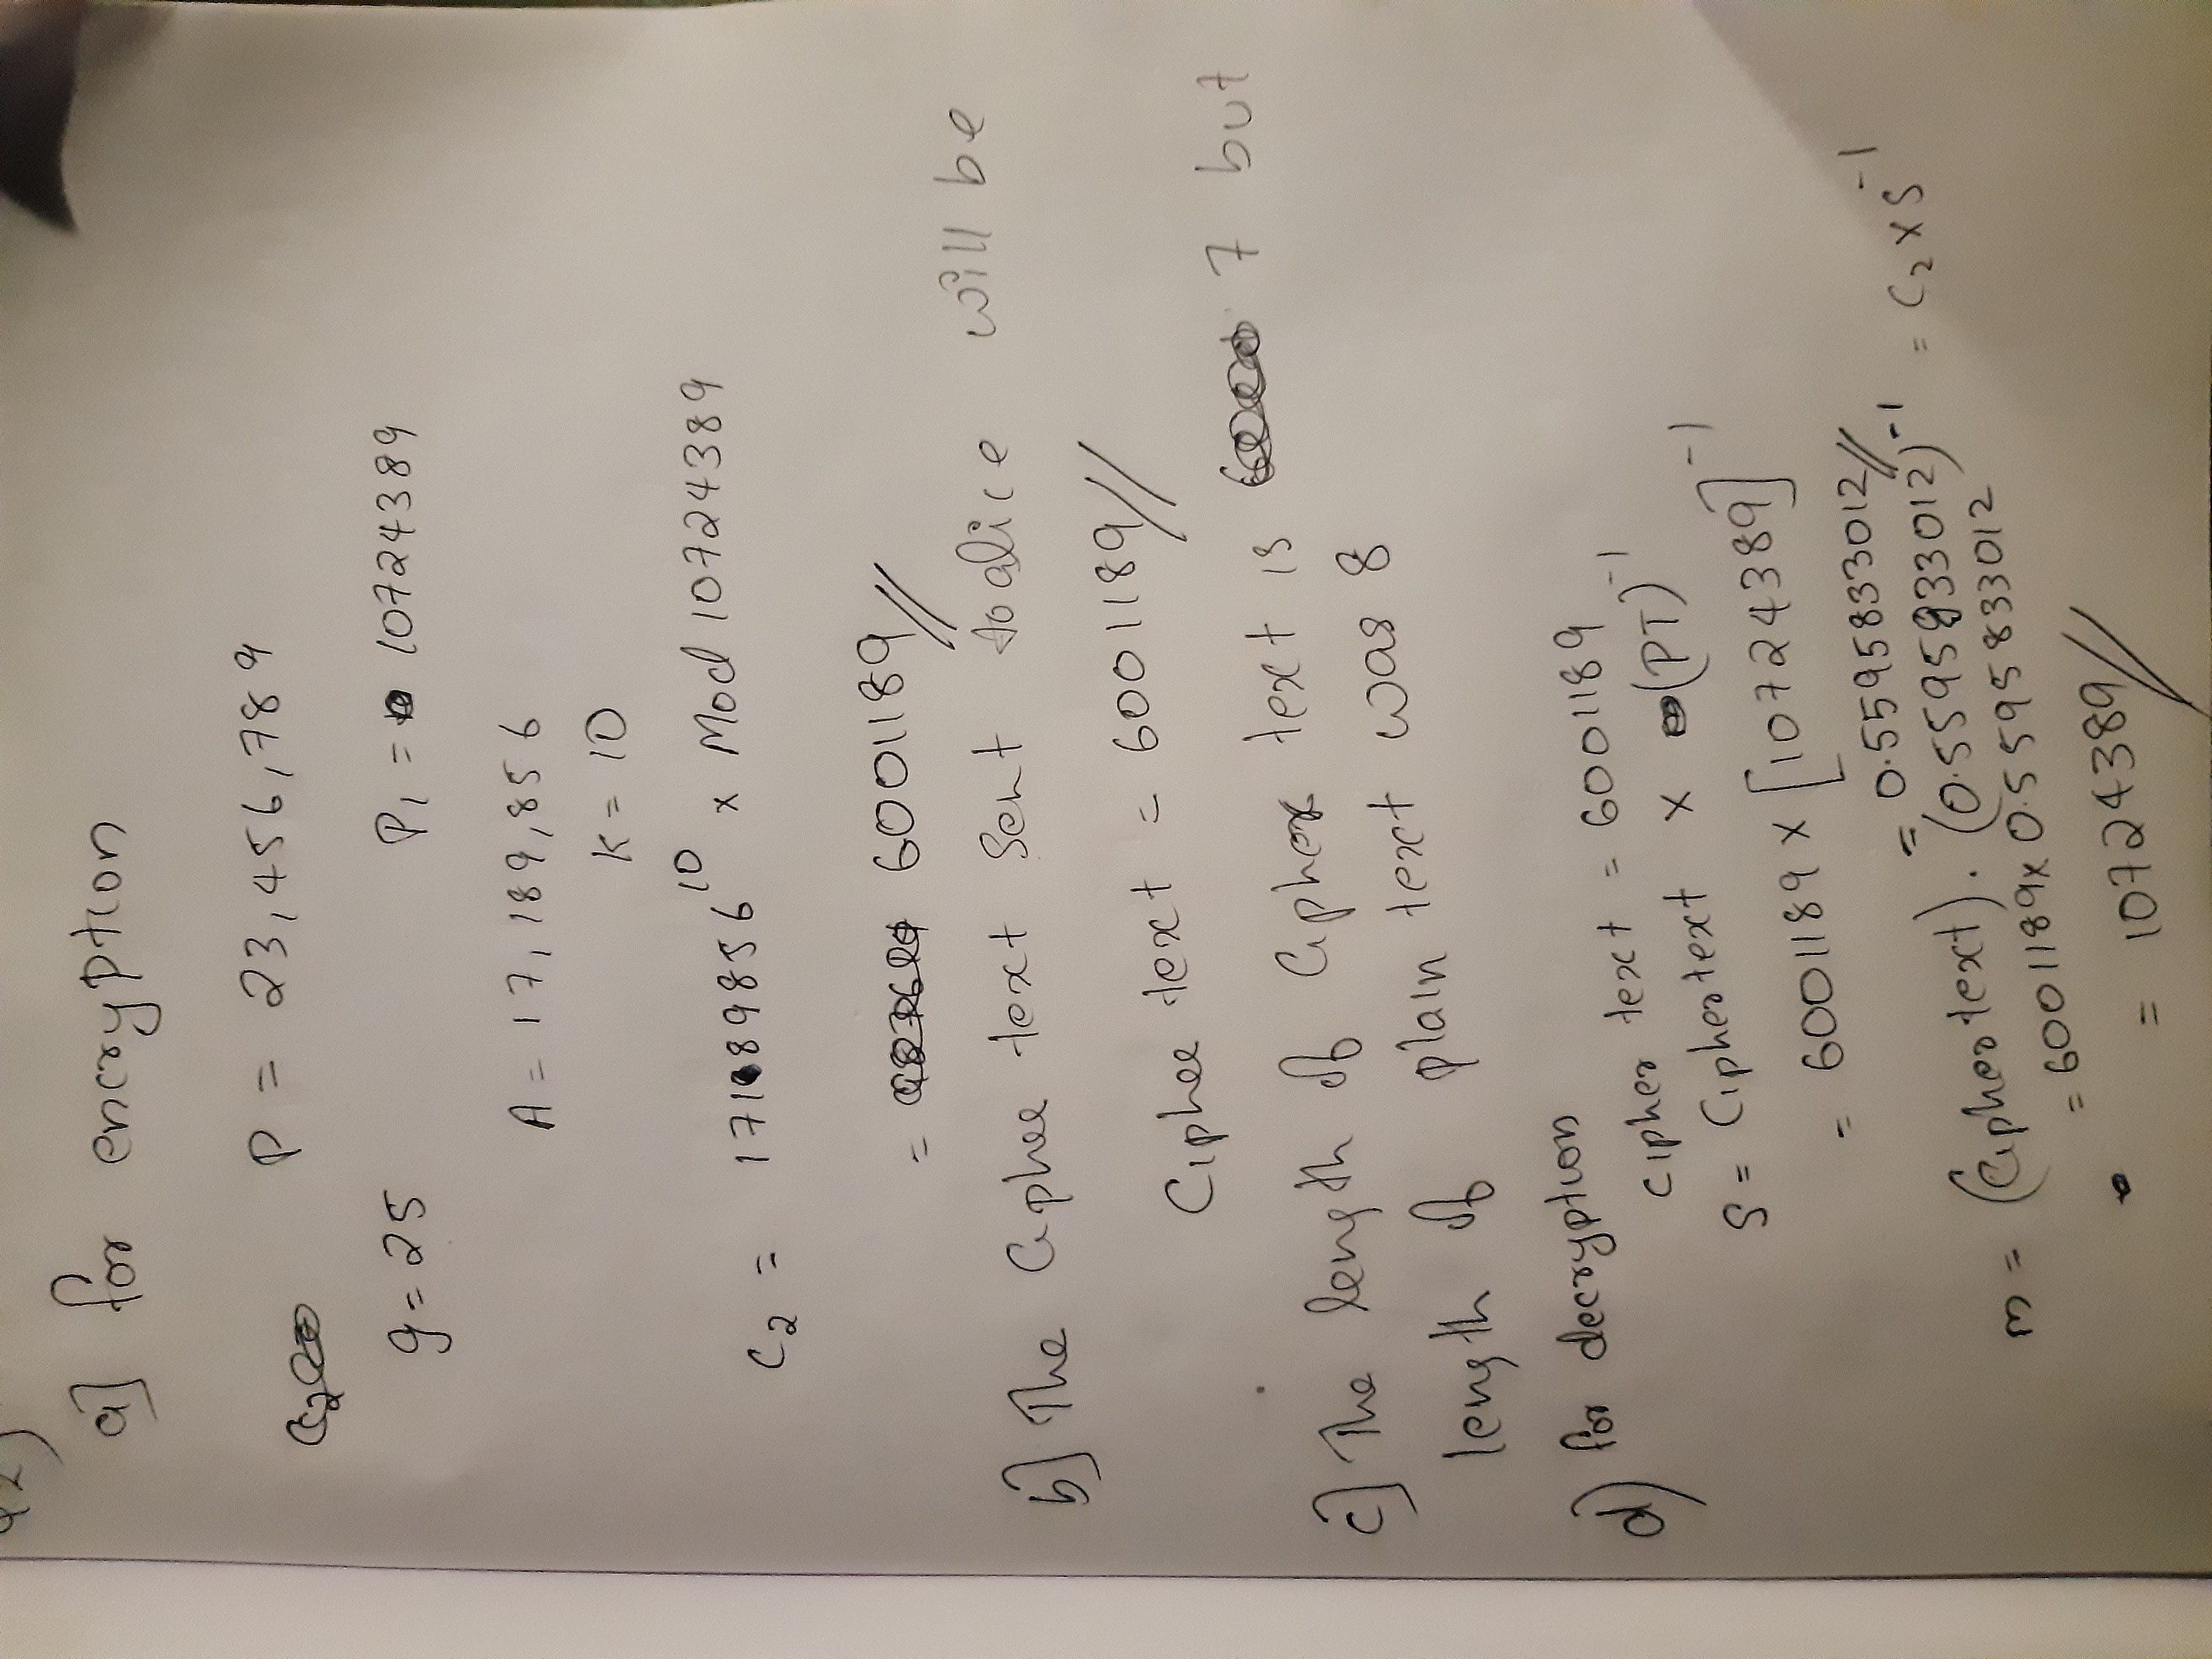 a] for encryption
P = 23,456,789
g = 25 P1 = 10724389
A = 17,189,856
K = 10
C2 = 17189856^10 x Mod 10724389
= 6001189//
b] The Cipher text Sent to alice will be
Cipher text = 6001189//
c] The length of Cipher text is 7 but
length of plain text was 8
d) for decryption
Cipher text = 6001189
S = Ciphertext x (PT)^-1
= 6001189 x [10724389]^-1
= 0.5595833012//
m = (Ciphertext). (0.5595833012)^-1 = C2 x S^-1
= 6001189 x 0.5595833012^-1
= 10724389//